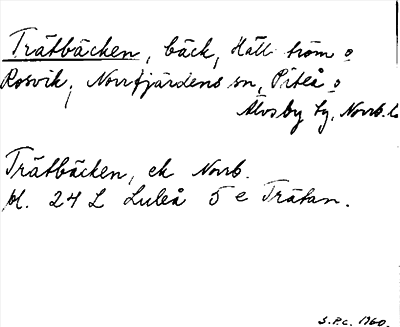 Trätbäcken, bäck, Hällström o
Rosvik, Norrfjärdens sn, Piteå o
Älvsby tg, Norrb. l.
Trätbäcken, ek Norrb.
bl. 24 L Luleå 5 e Trätan.
S.P.C. 1960.